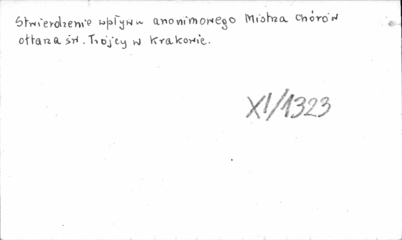 Stwierdzenie wpływu anonimowego Mistrza Chórów
ołtarza św. Trójcy w Krakowie.
XI/1323